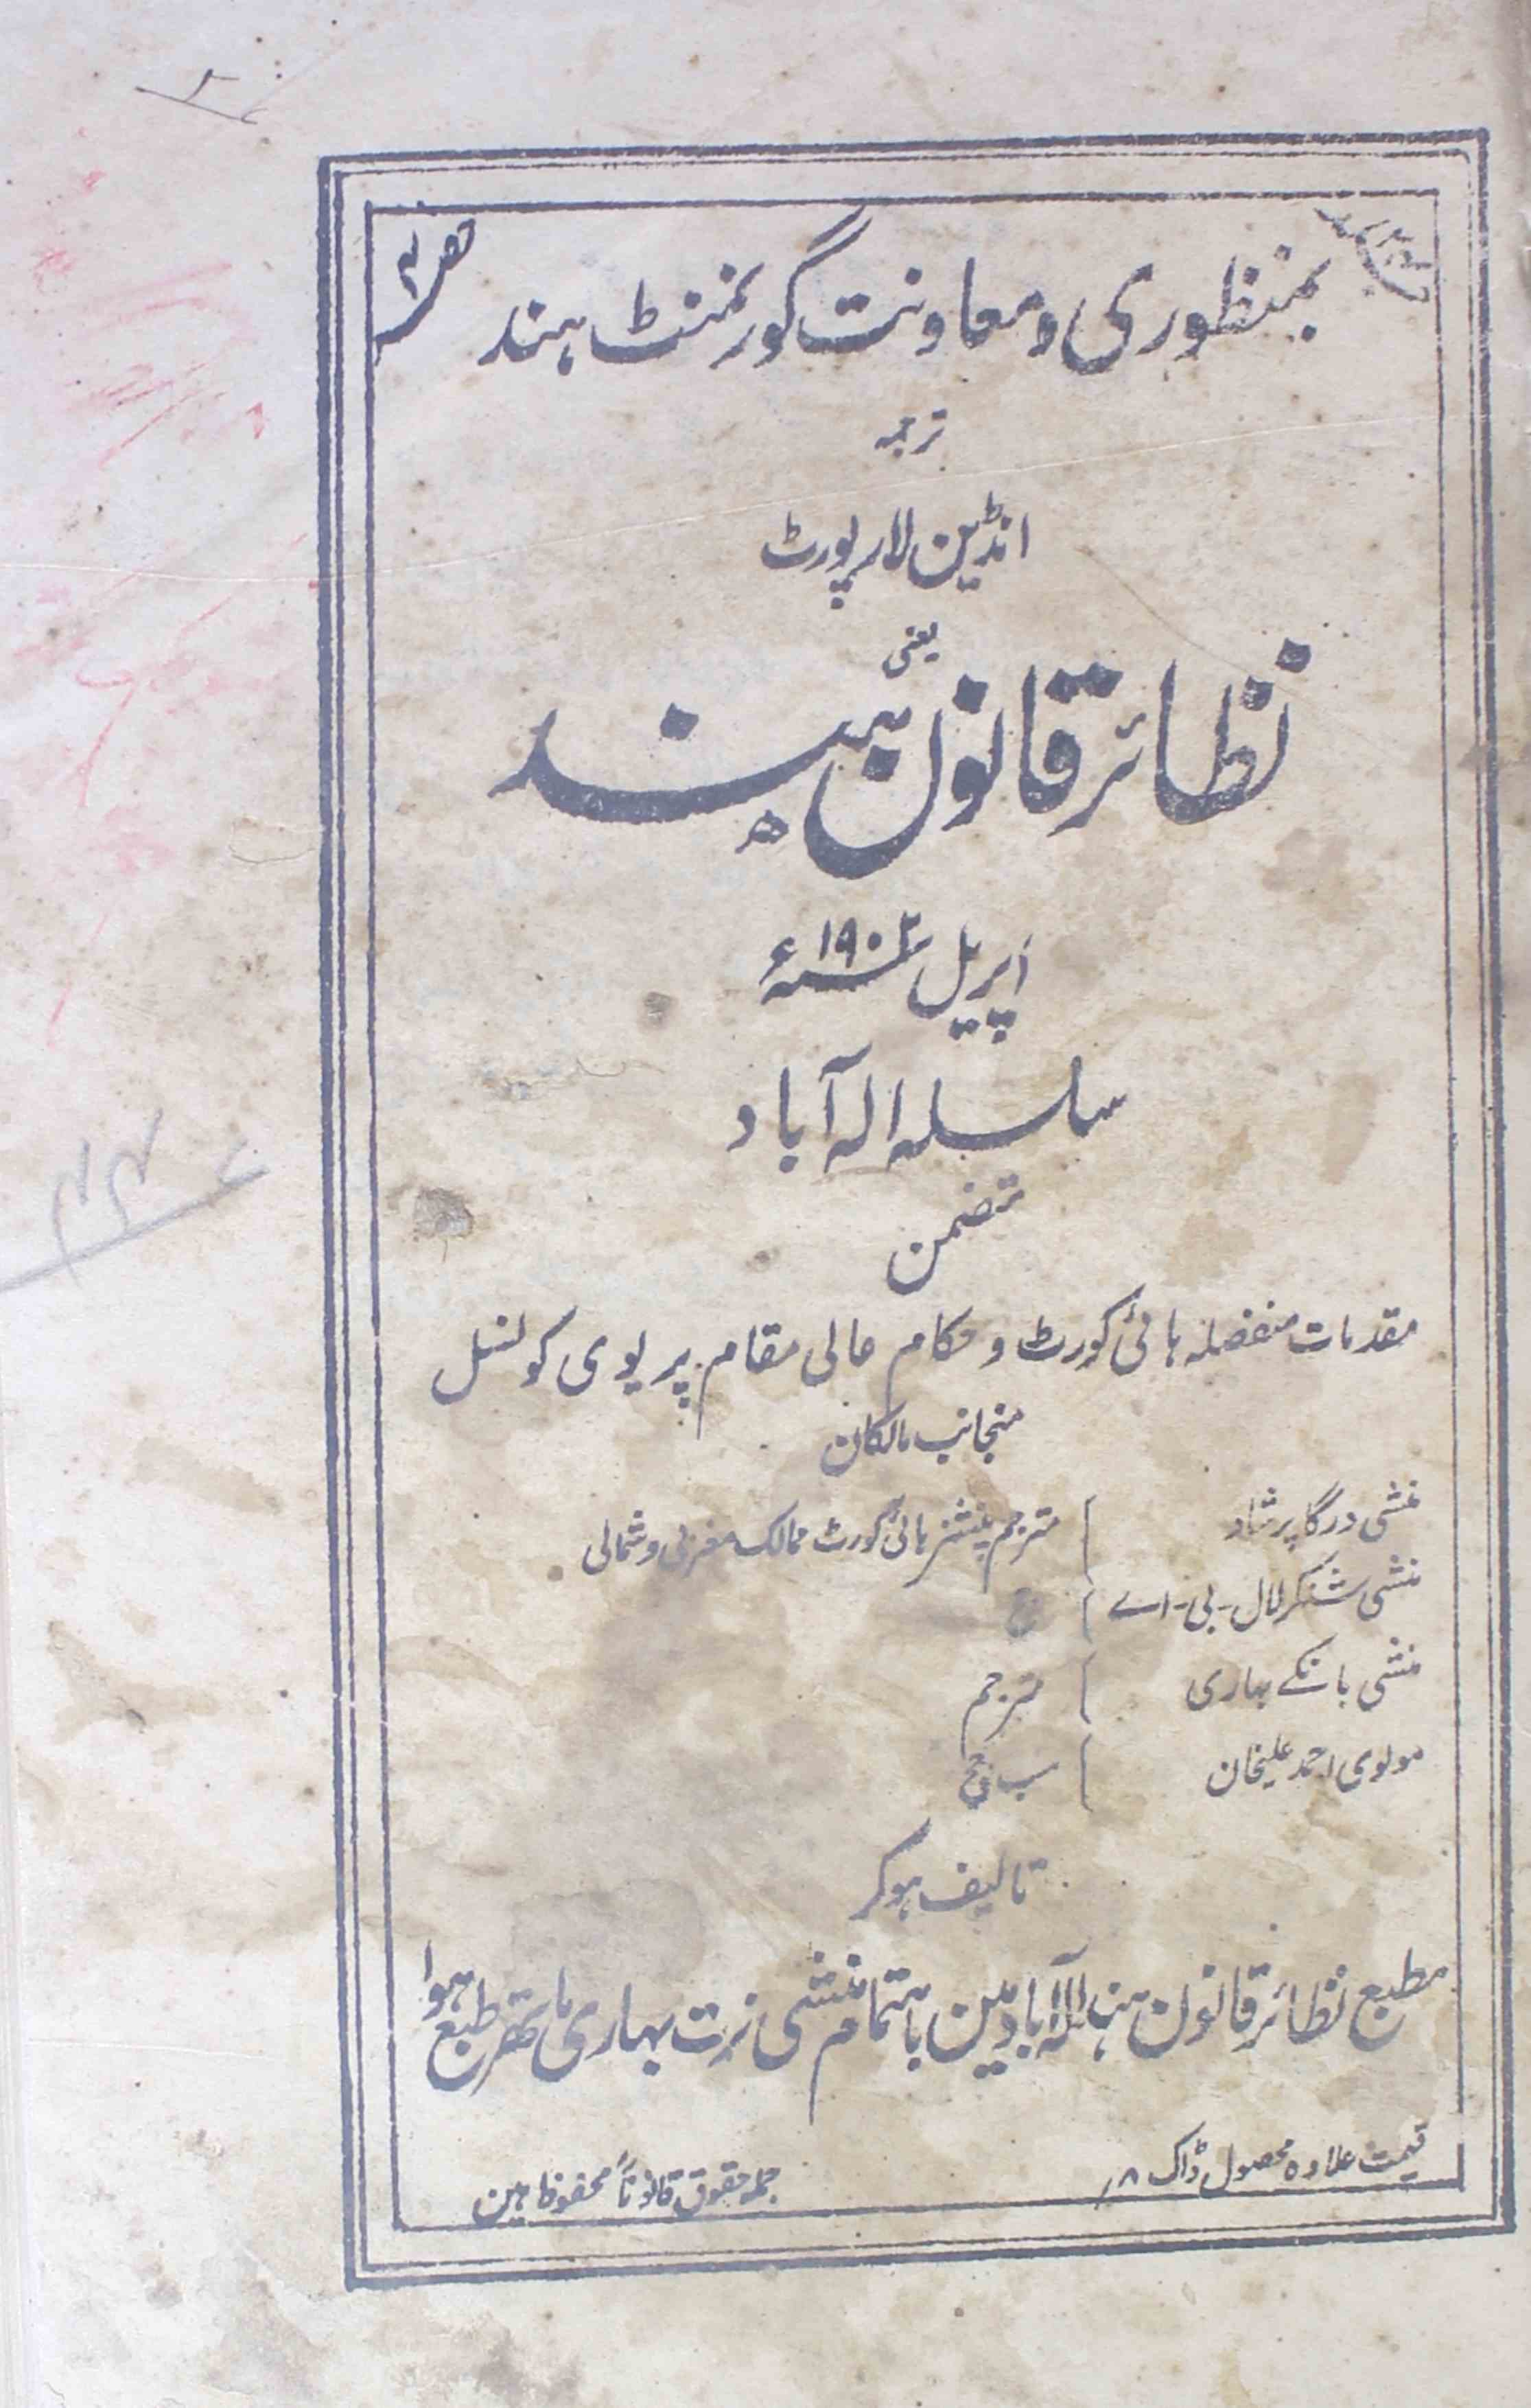 بمنظوری و معاونت گورنمنٹ ہند
حصہ ۴
ترجمہ
انڈین لا رپورٹ
یعنی
نظائر قانون ہند
اپریل ۱۹۰۲ء
سلسلہ الہ آباد
متضمن
مقدمات منفصلہ ہائی کورٹ و حکام عالی مقام پریوی کونسل
منجانب مالکان
منشی درگا پرشاد } مترجم پنشنر ہائی کورٹ ممالک مغربی و شمالی
منشی شنکر لال - بی - اے }
منشی بانکے بہاری } مترجم
مولوی احمد علیخان } سب جج
تالیف ہوکر
مطبع نظائر قانون ہند الہ آباد مین باہتمام منشی بہاری ماتھر طبع ہوا
قیمت علاوہ محصول ڈاک ۸؍
جملہ حقوق قانوناً محفوظ ہین